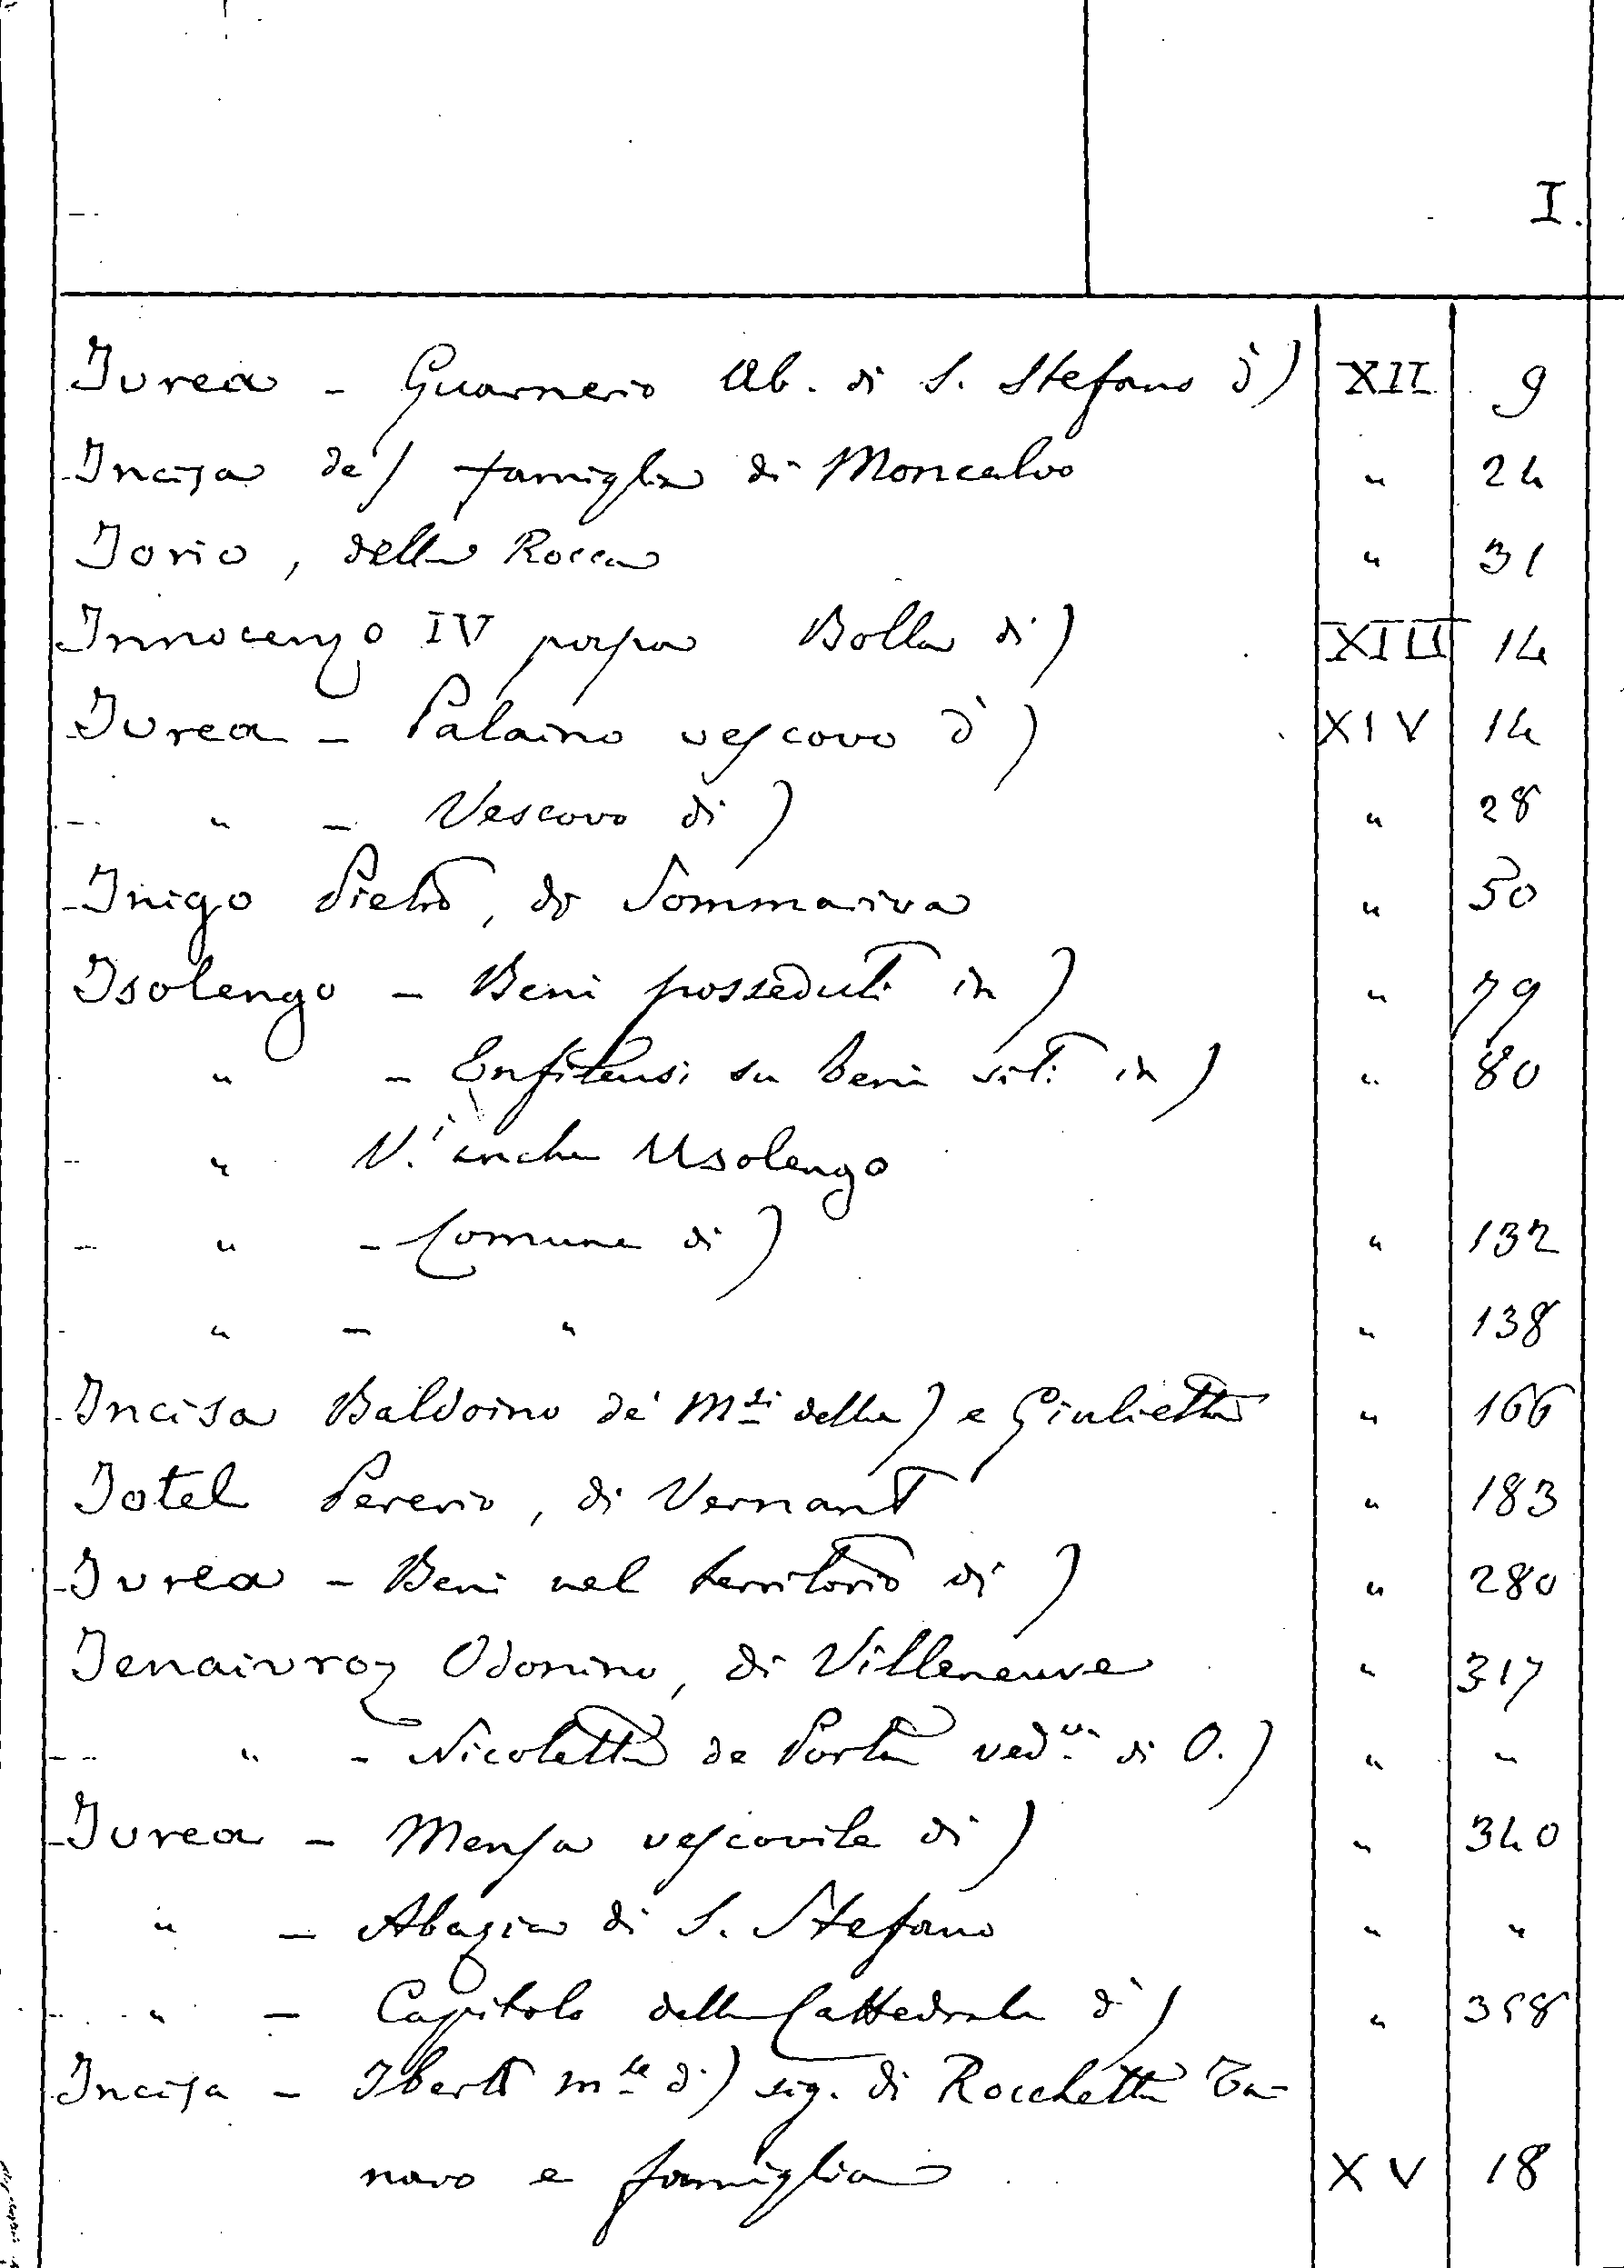 I.
Ivrea - Guarnerio Ab. di S. Stefano d') XII 9
Incisa de) famiglia di Moncalvo " 24
Iorio, della Rocca " 31
Innocenzo IV papa Bolla di) XIII 14
Ivrea - Palaino vescovo d') XIV 14
" - Vescovo di) " 28
Inigo Pietro, di Sommariva " 50
Isolengo - Beni posseduti in) " 79
" - Enfiteusi su beni siti in) " 80
" V.i anche Usolengo
" - Comune di) " 132
" - " " 138
Incisa Baldoino de' M.si della) e Giulietta " 166
Iotel Pererio, di Vernant " 183
Ivrea - Beni nel territorio di) " 280
Ienaivroz Odonino, di Villeneuve " 317
" - Nicoletta de Porta ved.va di O.) " "
Ivrea - Mensa vescovile di) " 340
" - Abazia di S. Stefano " "
" - Capitolo della Cattedrale d') " 358
Incisa - Iberto m.se di) sig. di Rocchetta Ta-
naro e famiglia XV 18